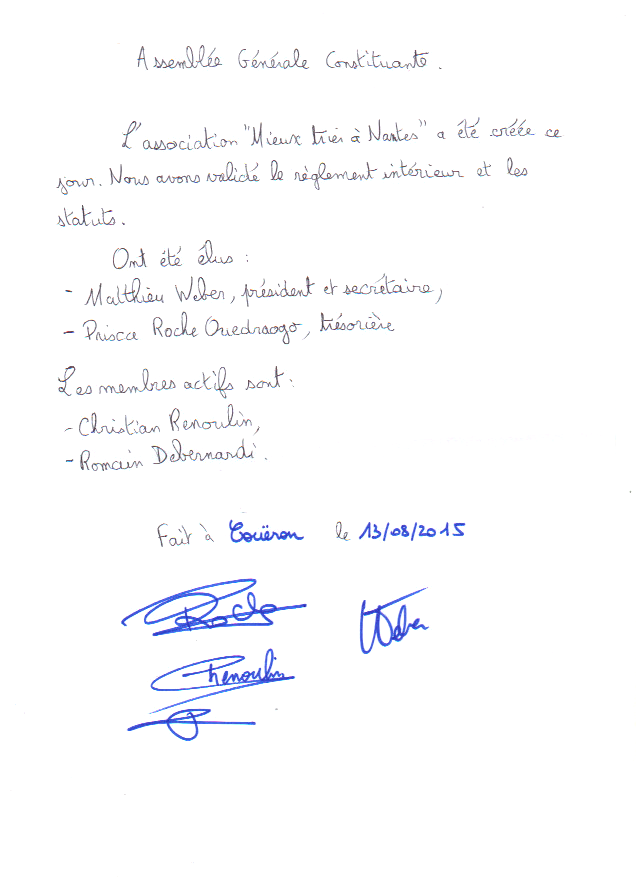 Assemblée Générale Constituante.
L'association "Mieux trier à Nantes" a été créée ce
jour. Nous avons validé le règlement intérieur et les
statuts.
Ont été élus :
- Matthieu Weber, président et secrétaire,
- Prisca Roche Ouedraogo, trésorière
Les membres actifs sont :
- Christian Renoulin,
- Romain Debernardi.
Fait à Couëron le 13/08/2015
Roche Weber
Renoulin